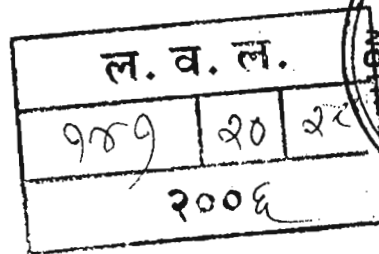 ल. व. ल.
१४१ २० २८
२००६